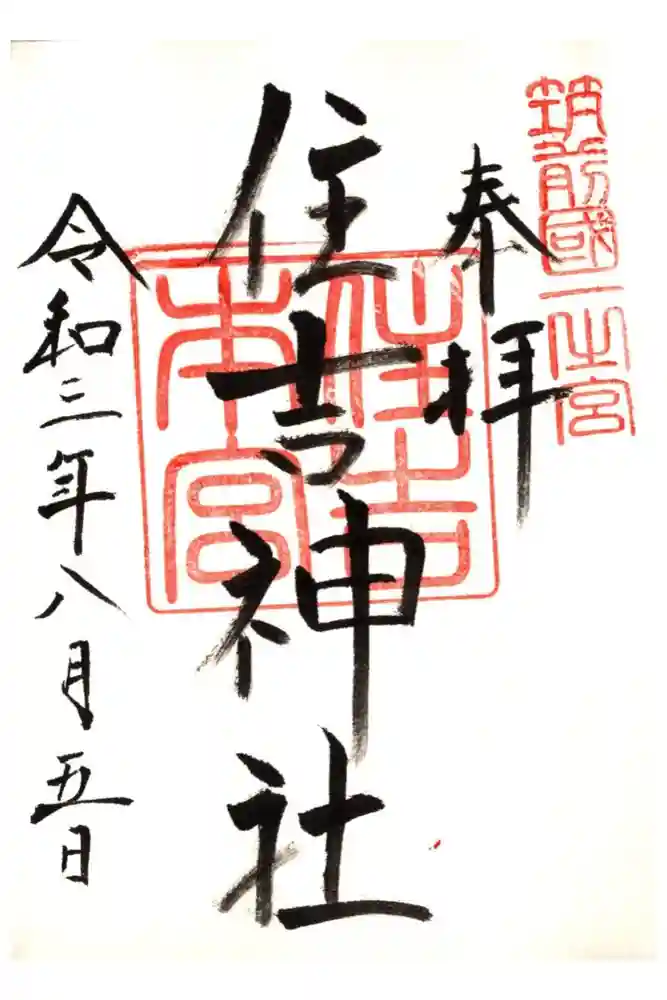 筑前國一之宮
奉拝
住吉神社
住吉
本宮
令和三年八月五日